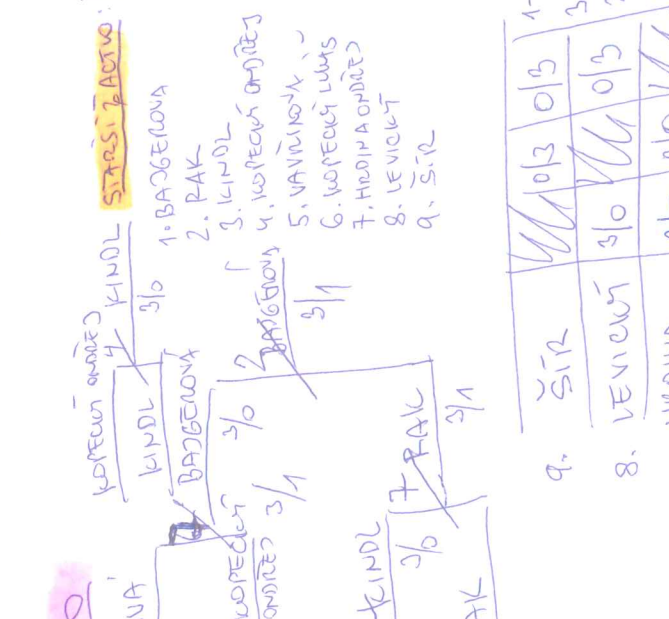 STARŠÍ ŽACTVO:
1. BAJGEROVÁ
2. RAK
3. KINDL
4. KOPECKÝ ONDŘEJ
5. VAVŘÍKOVÁ
6. KOPECKÝ LUKÁŠ
7. HRDINA ONDŘEJ
8. LEVICKÝ
9. ŠÍR
KOPECKÝ ONDŘEJ
4
KINDL
KINDL
3/0
BAJGEROVÁ
3/0
2
BAJGEROVÁ
3/1
KOPECKÝ
ONDŘEJ
3/1
7
RAK
3/1
KINDL
3/0
9. ŠÍR 0/3 0/3
8. LEVICKÝ 3/0 0/3